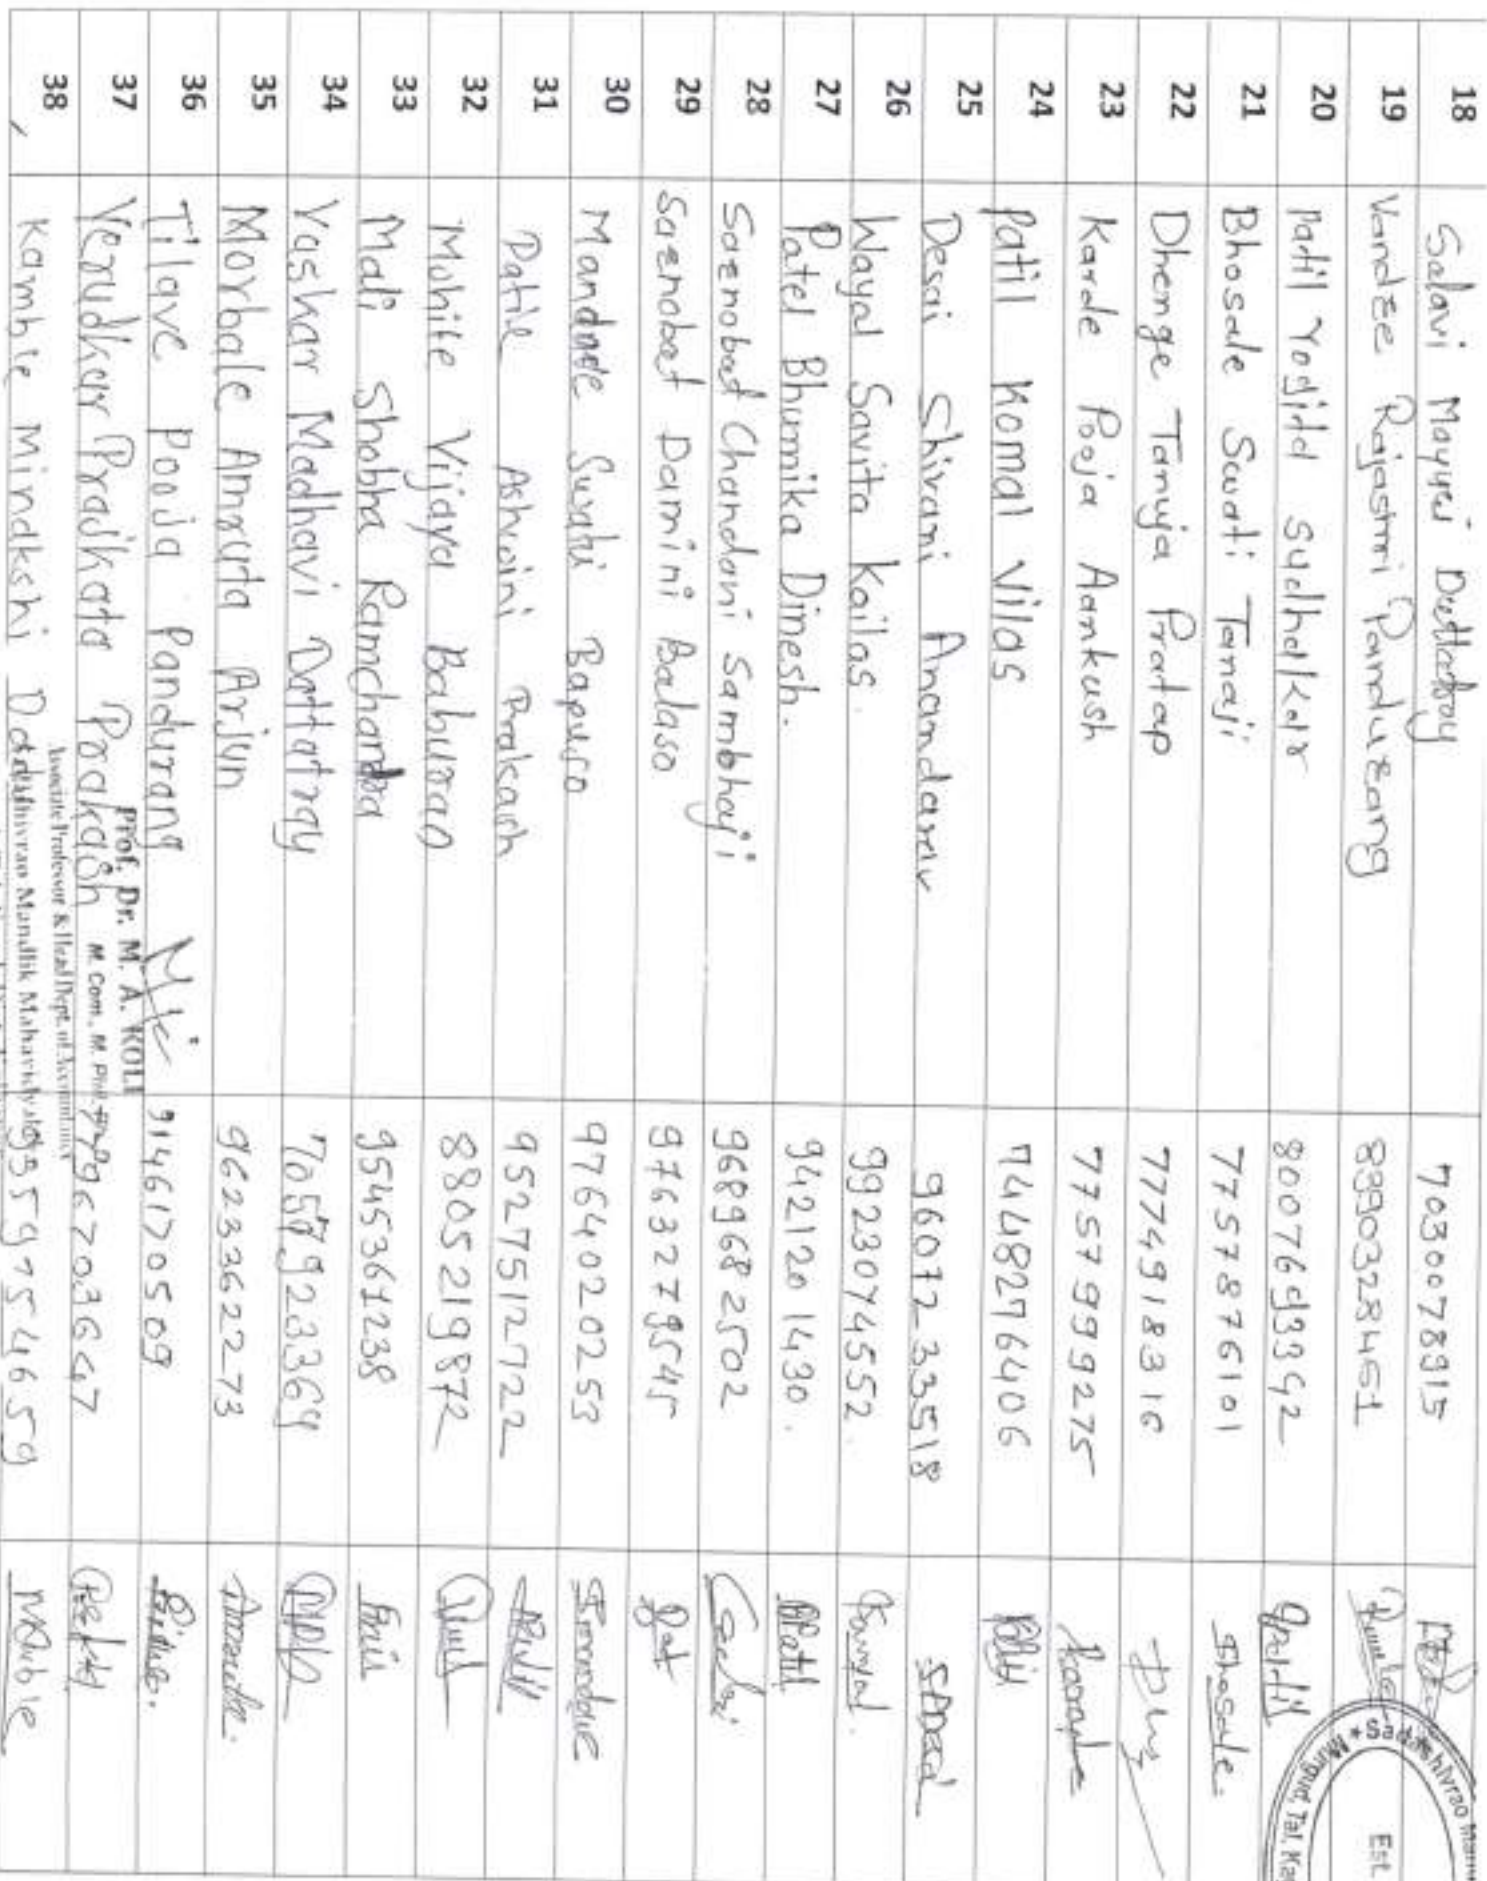 18 Salavi Mayuri Dattatray 7030078915
19 Rajashri Pandurang 8390328451
20 Patil Yogita Sudhakar 8007693342
21 Bhosale Swati Tanaji 7757876101 Bhosale.
22 Dhenge Tanuja Pratap 7774918316
23 Karde Pooja Aankush 7757999275
24 Patil Komal Vilas 7448276406 Patil
25 Desai Shivani Anandarav 9607233518
26 Wayal Savita Kailas. 9923074552.
27 Patel Bhumika Dinesh. 9421201430. BPatel
28 Saenobat Chandani Sambhaji 9689682502
29 Saenobat Damini Balaso 9763279545
30 Mandade Suvatu Bapuso 9764020253
31 Patil Ashwini Prakash 9527512722
32 Mohite Vijaya Baburao 8805219872
33 Mali Shobha Ramchandra 9545361238
34 Vaskar Madhavi Dattatray 7057923369
35 Morbale Amruta Arjun 9623362273
36 Tilave Pooja Pandurang 9146170509
37 Verudkar Prajkata Prakash 7796703647
Prof. Dr. M. A. KOLI
M. Com., M. Phil.
Associate Professor & Head Dept. of Accountancy
38 Kamble Minakshi 9359754659
Sadashivrao Mandlik Mahavidyalaya
Est
Murgud, Tal. Kag